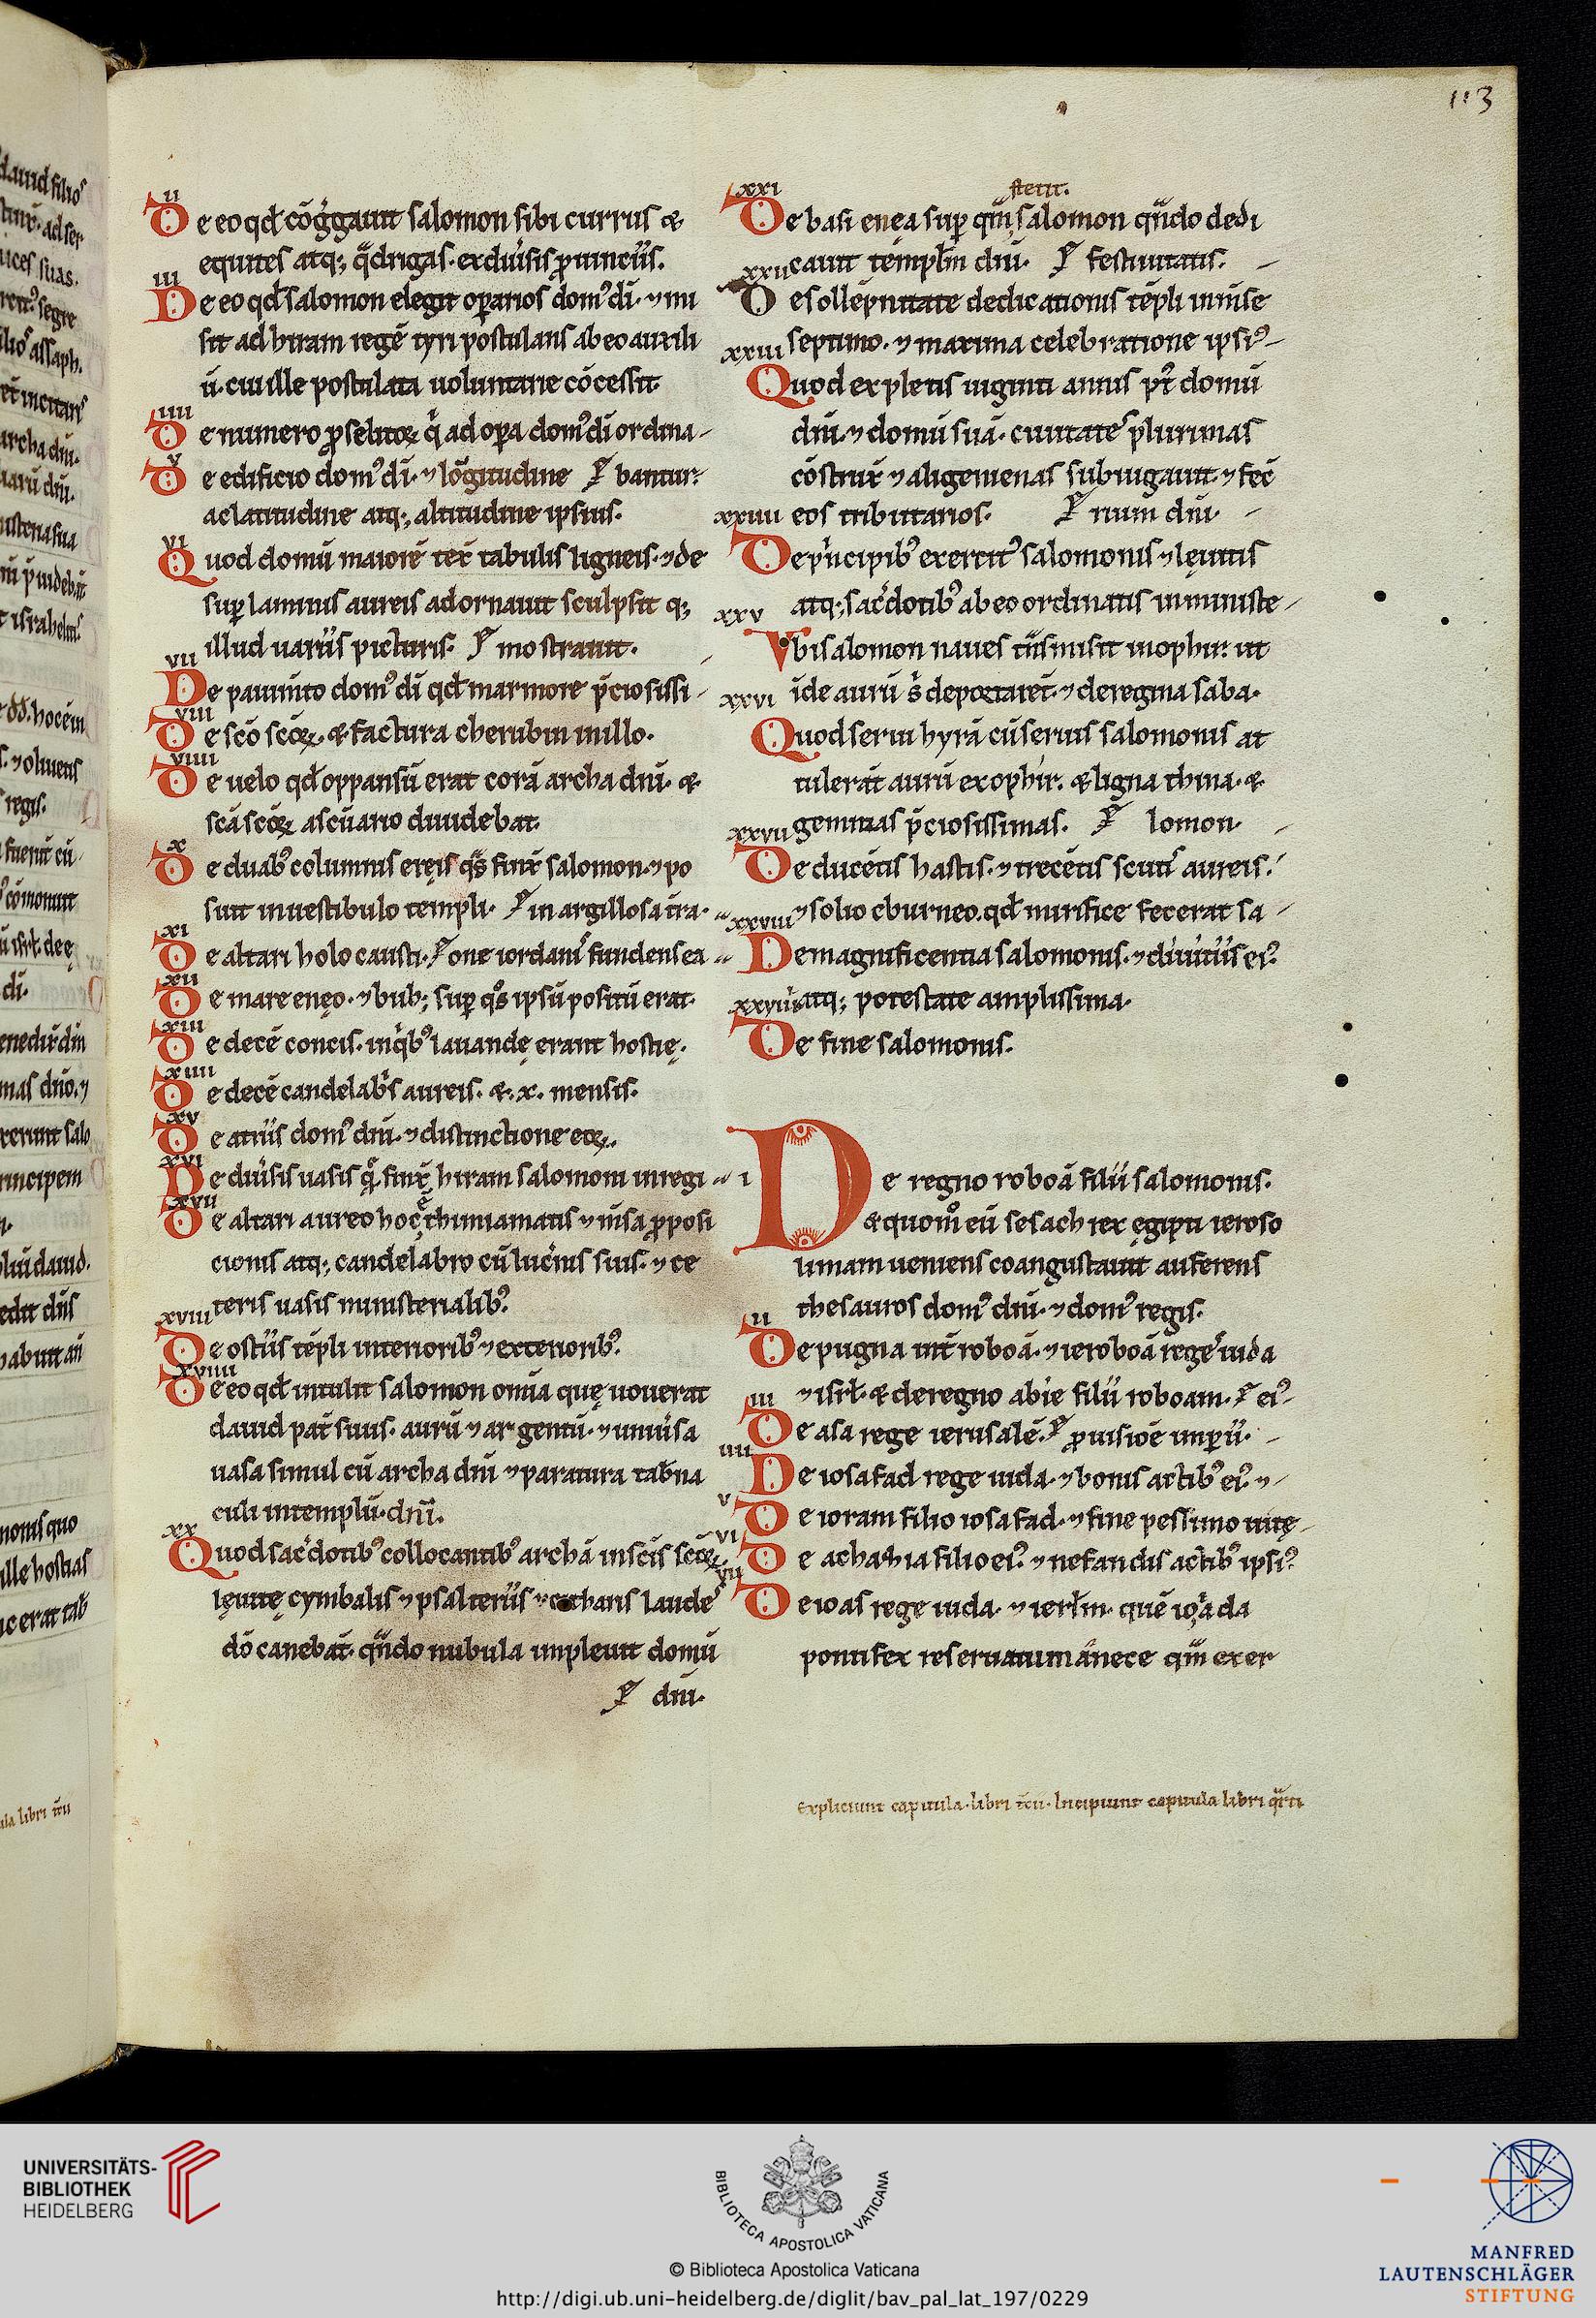 113
ii
De eo qđ cōg̃gauit salomon sibi currus &
equites atq;, q̃drigas. ex diu̾sis ꝓuinciis.
iii
De eo qđ salomon elegit oꝑarios domꝰ dī. ⁊ mi
sit ad hiram regē tyri postulans ab eo auxili
ū. cui ille postulata uoluntarie cōcessit.
iiii
De numero ꝓselitoꝝ q̇ ad oꝑa domꝰ dī ordina
v
De edificio domꝰ dī. ⁊ lōgitudine bantur.
ac latitudine atq;, altitudine ipsius.
vi
Quod domū maiorē tex̄ tabulis ligneis. ⁊ de
suꝑ laminis aureis adornauit sculpsit q;
illud uariis picturis. mo strauit.
vii
De pauim̄to domꝰ dī qđ marmore p̄ciosissi
viii
De scō scōꝝ. & factura cherubin in illo.
viiii
De uelo qđ oppansū erat corā archa dnī. &
scā scōꝝ a scūario diuidebat.
x
De duabꝰ columnis eręis q̄s finx̄ salomon. ⁊ po
suit in uestibulo templi. in argillosa tr̄a.
xi
De altari holocausti. one iordanis fundens ea
xii
De mare enęo. ⁊ bub; suꝑ q̊s ipsū positū erat.
xiii
De decē concis. in q̇bꝰ lauandę erant hostię.
xiiii
De decē candelabris aureis. &. x. mensis.
xv
De atriis domꝰ dnī. ⁊ distinctione eoꝝ.
xvi
De diu̾sis uasis q̄ finx̄ hiram salomoni in regi
xvii
De altari aureo hoc ē thimiamatis ⁊ m̄sa ꝓposi
cionis atq;, candelabro cū lucn̄is suis. ⁊ ce
teris uasis ministerialibꝰ.
xviii
De ostiis tēpli interioribꝰ ⁊ exterioribꝰ.
xviiii
De eo qđ intulit salomon om̄ia quę uouerat
dauid pat̄ suus. aurū ⁊ argentū. ⁊ uniu̾sa
uasa simul cū archa dnī ⁊ paratura tab̄na
culi in templū. dnī.
xx
Quod sac̄dotibꝰ collocantibꝰ archā in scīs scōꝝ.
lęuitę cymbalis ⁊ psalteriis ⁊ citharis laude
dō canebāt. qn̄do nubula impleuit domū
dnī.
xxi
stetit.
De basi enęa suꝑ qm̄ salomon qn̄do dedi
cauit templm̄ dnī. festiuitatis.
xxii
De sollēpnitate dedicationis tēpli in m̄se
septimo. ⁊ maxima celebratione ipsiꝰ
xxiii
Quod expletis uiginti annis pꝰ domū
dnī. ⁊ domū suā. ciuitates plurimas
cōstrux̄ ⁊ aligenienas subiugauit. ⁊ fec̄
eos tributarios. rium dnī.
xxiiii
De pr̄incipibꝰ exercitꝰ salomonis ⁊ lęuitis
atq;, sac̄dotibꝰ ab eo ordinatis in ministe
xxv
Vbi salomon naues tn̄smisit in ophir. ut
īde aurū s̄ deportaret. ⁊ de regina saba.
xxvi
Quod serui hyrā cū seruis salomonis at
tulerāt aurū ex ophir. & ligna thina. &
gemmas p̄ciosissimas. lomon.
xxvii
De ducētis hastis. ⁊ trecētis scutis aureis.
⁊ solio eburneo. qđ mirifice fecerat sa
xxviii
De magnificentia salomonis. ⁊ diuitiis eiꝰ.
atq;, potestate amplissima.
xxviiii
De fine salomonis.
i
De regno roboā filii salomonis.
& quom̊ eū sesach rex ęgipti ieroso
limam ueniens coangustauit auferens
thesauros domꝰ dnī. ⁊ domꝰ regis.
ii
De pugna int̄ roboā. ⁊ ieroboā reges iuda
⁊ isrł. & de regno abię filii roboam. eiꝰ.
iii
De asa rege ierusalē. ꝓuisioē imꝑii.
iiii
De iosafad rege iuda. ⁊ bonis actibꝰ eiꝰ. ⁊
v
De ioram filio iosafad. ⁊ fine pessimo uitę
vi
De achahia filio eiꝰ. ⁊ nefandis actibꝰ ipsiꝰ.
vii
De ioas rege iuda. ⁊ ierłm. quē ioiada
pontifex reseruatum a nece qm̄ exer
Expliciunt capitula. libri t̄cii. Incipiunt capitula libri q̄rti
UNIVERSITÄTS-
BIBLIOTHEK
HEIDELBERG
BIBLIOTECA APOSTOLICA VATICANA
© Biblioteca Apostolica Vaticana
http://digi.ub.uni-heidelberg.de/diglit/bav_pal_lat_197/0229
MANFRED
LAUTENSCHLÄGER
STIFTUNG